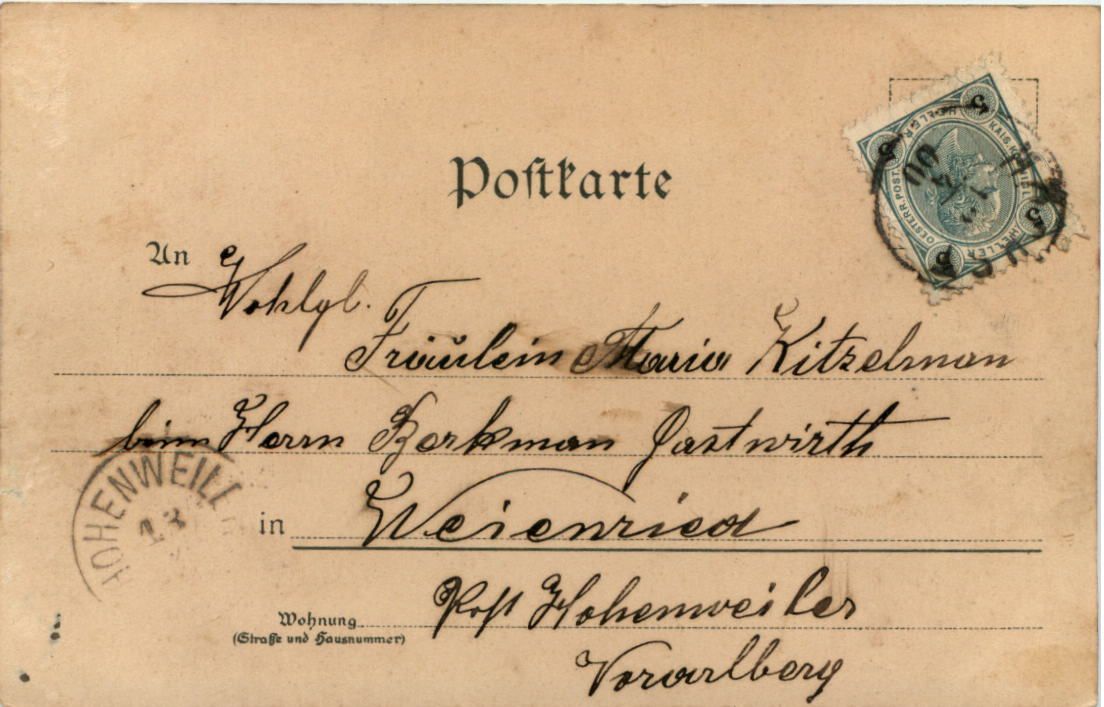 Postkarte
An
Wohlgb.
Fräulein Maria Kitzelman
beim Herrn Berkman Gastwirth
in Weienried
Wohnung
(Straße und Hausnummer)
Post Hohenweiler
Vorarlberg
HOHENWEILE
13
OESTERR. POST.
5 HELLER 5
00